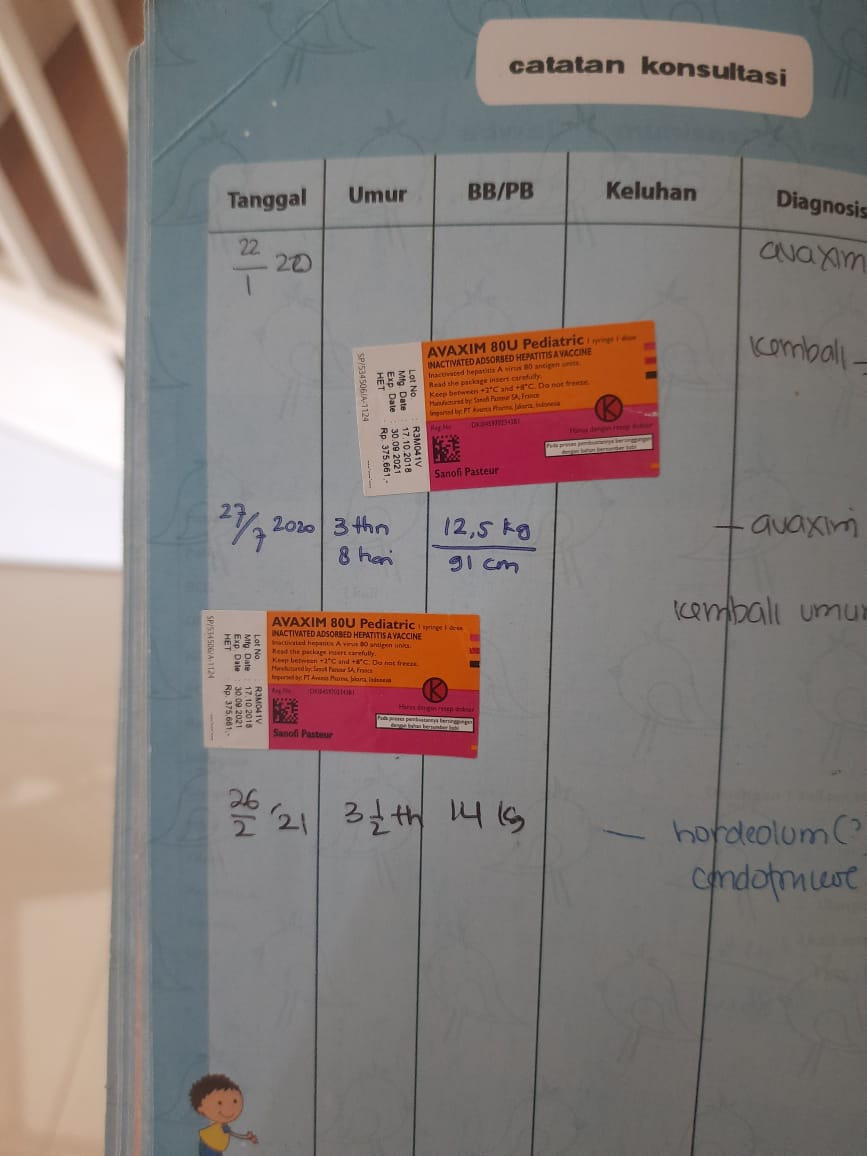 catatan konsultasi
Tanggal Umur BB/PB Keluhan Diagnosis
22/1 20 avaxim
kembali -
AVAXIM 80U Pediatric 1 syringe 1 dose
INACTIVATED ADSORBED HEPATITIS A VACCINE
Inactivated hepatitis A virus 80 antigen units.
Read the package insert carefully.
Keep between +2°C and +8°C. Do not freeze.
Manufactured by: Sanofi Pasteur SA, France
Imported by: PT Aventis Pharma, Jakarta, Indonesia
Reg. No.
K
Harus dengan resep dokter
Pada proses pembuatannya bersinggungan
dengan bahan bersumber babi
Sanofi Pasteur
Lot No : R3M041V
Mfg Date : 17.10.2018
Exp. Date : 30.09.2021
HET : Rp. 375.661,-
SP/534506/A-1124
27/7 2020 3 thn 12,5 kg - avaxim
8 hari 91 cm
kembali umur
AVAXIM 80U Pediatric 1 syringe 1 dose
INACTIVATED ADSORBED HEPATITIS A VACCINE
Inactivated hepatitis A virus 80 antigen units.
Read the package insert carefully.
Keep between +2°C and +8°C. Do not freeze.
Manufactured by: Sanofi Pasteur SA, France
Imported by: PT Aventis Pharma, Jakarta, Indonesia
Reg. No.
K
Harus dengan resep dokter
Pada proses pembuatannya bersinggungan
dengan bahan bersumber babi
Sanofi Pasteur
Lot No : R3M041V
Mfg Date : 17.10.2018
Exp. Date : 30.09.2021
HET : Rp. 375.661,-
SP/534506/A-1124
26/2 '21 3 1/2 th 14 kg - hordeolum (?